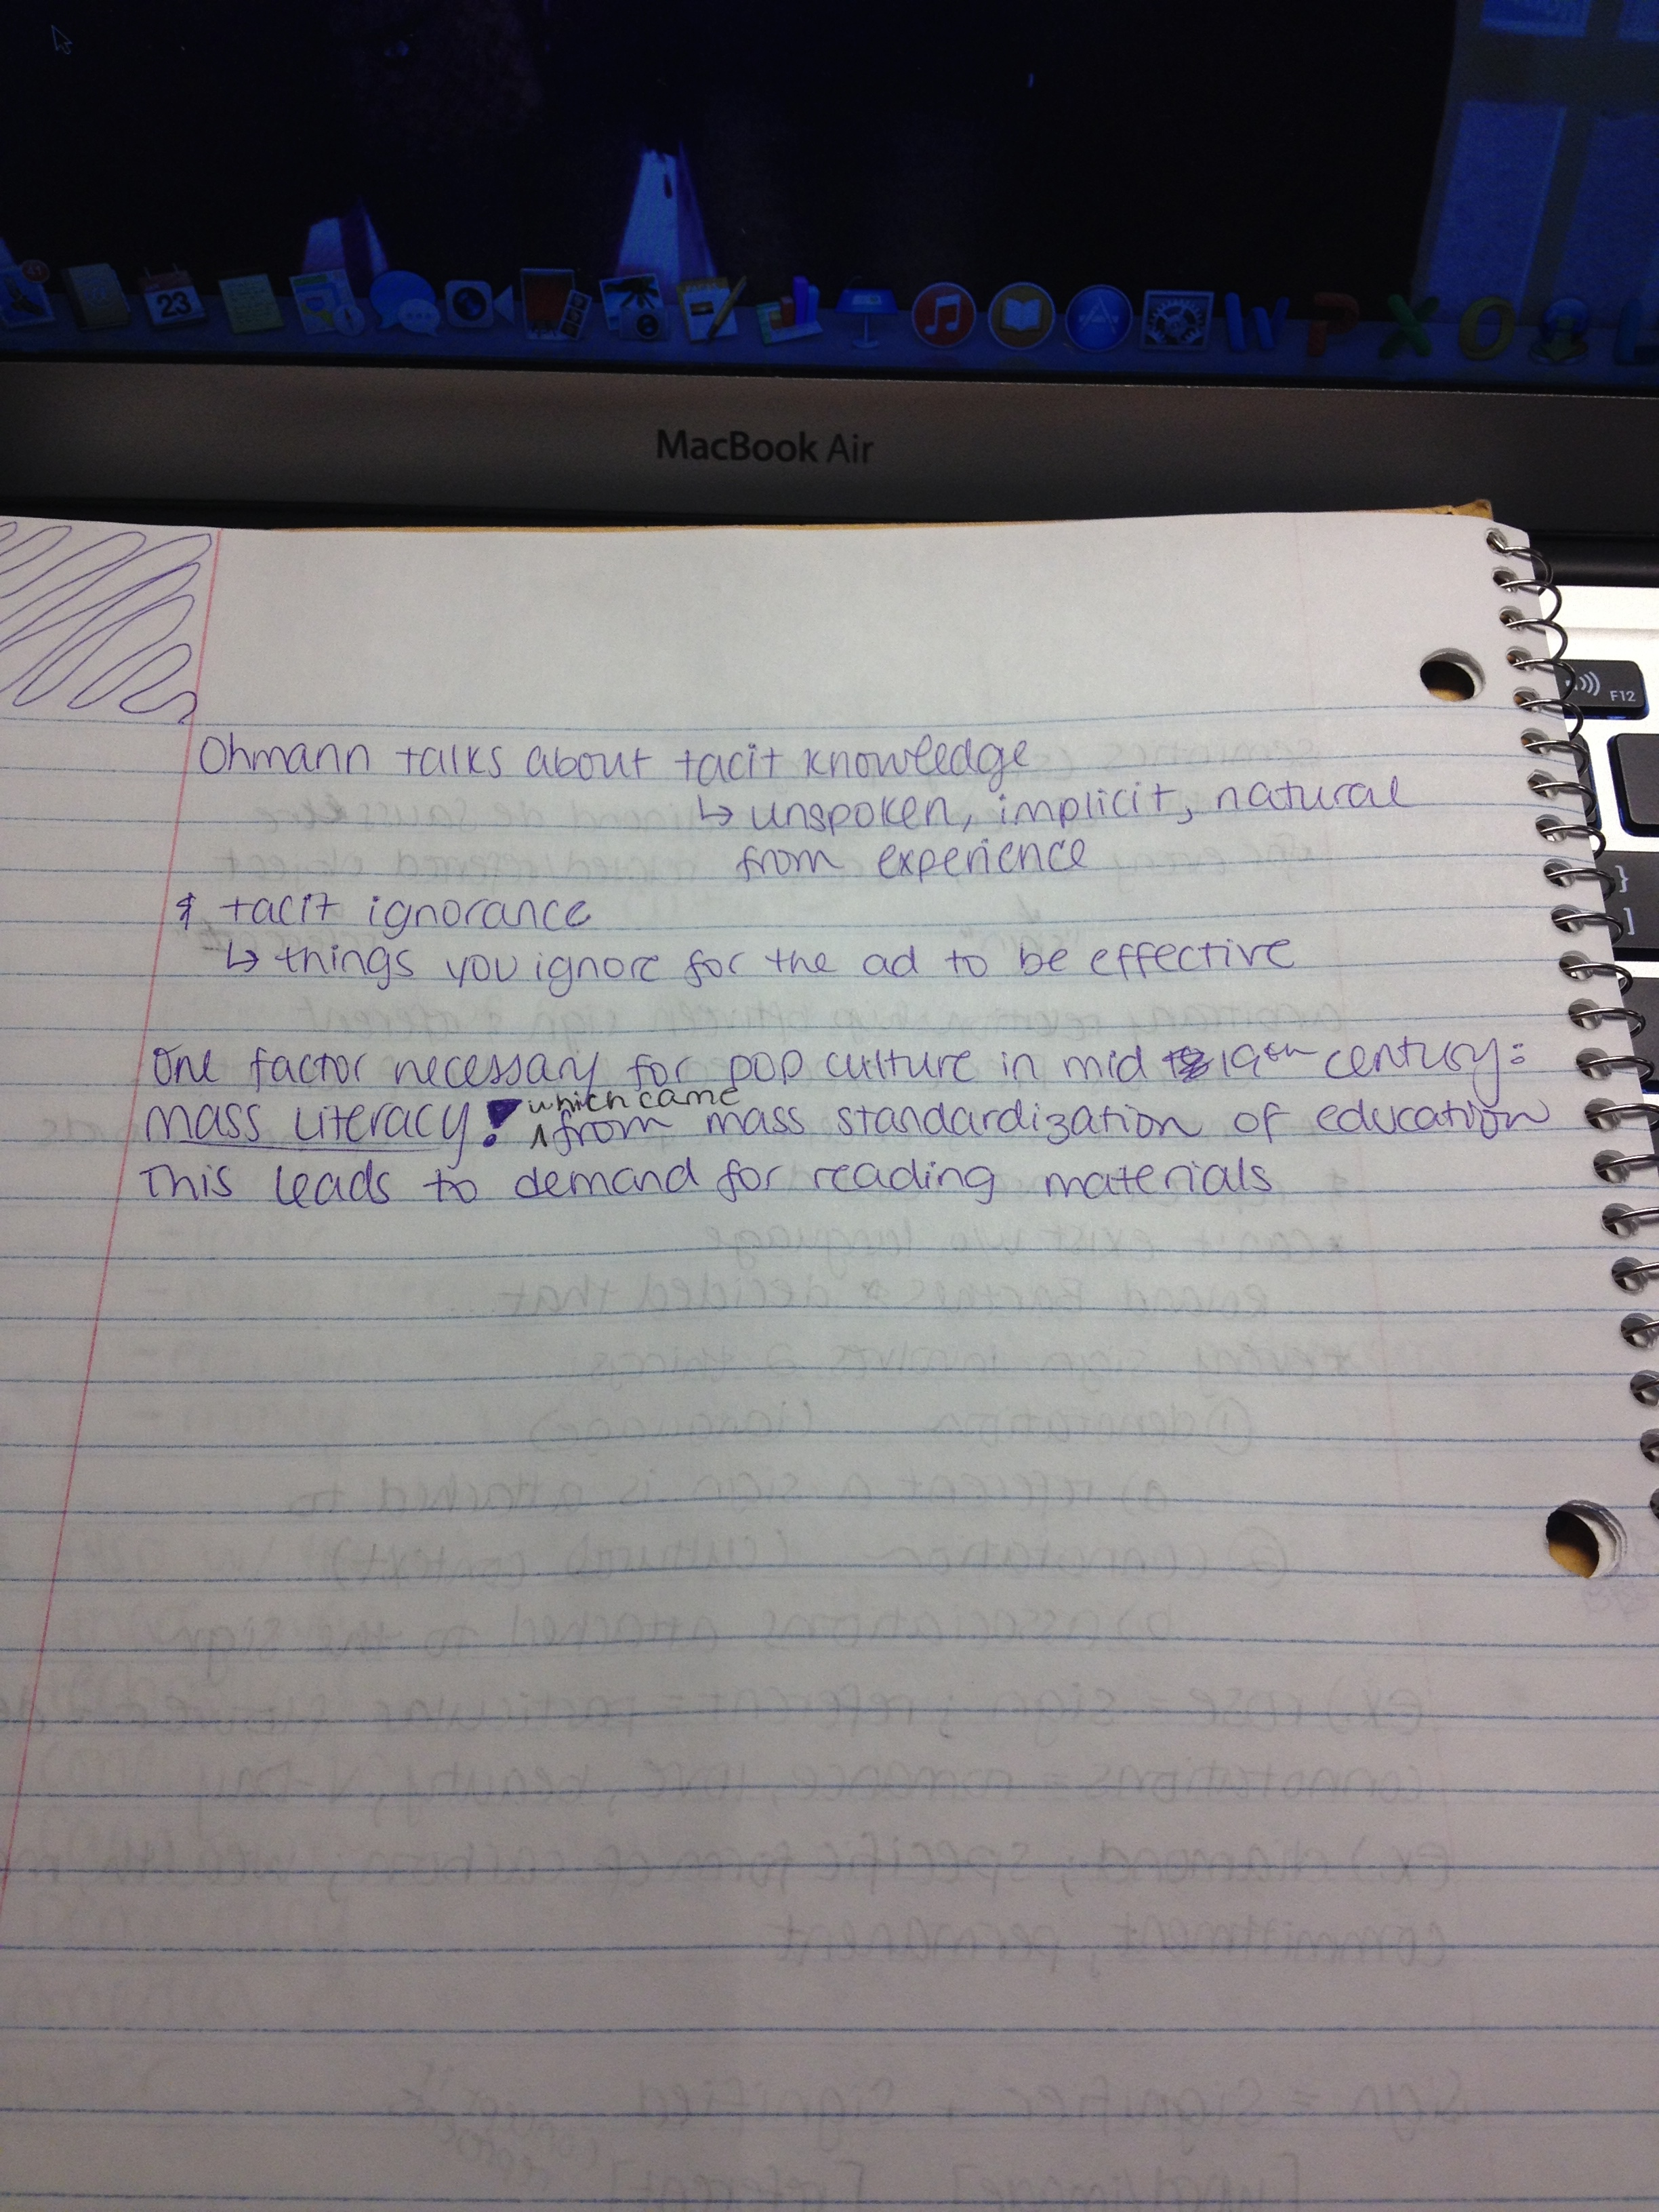 23
W P X O
MacBook Air
F12
}
]
Ohmann talks about tacit knowledge
↳ unspoken, implicit, natural
from experience
& tacit ignorance
↳ things you ignore for the ad to be effective
One factor necessary for pop culture in mid 19th century:
mass literacy! ^which came from mass standardization of education
This leads to demand for reading materials